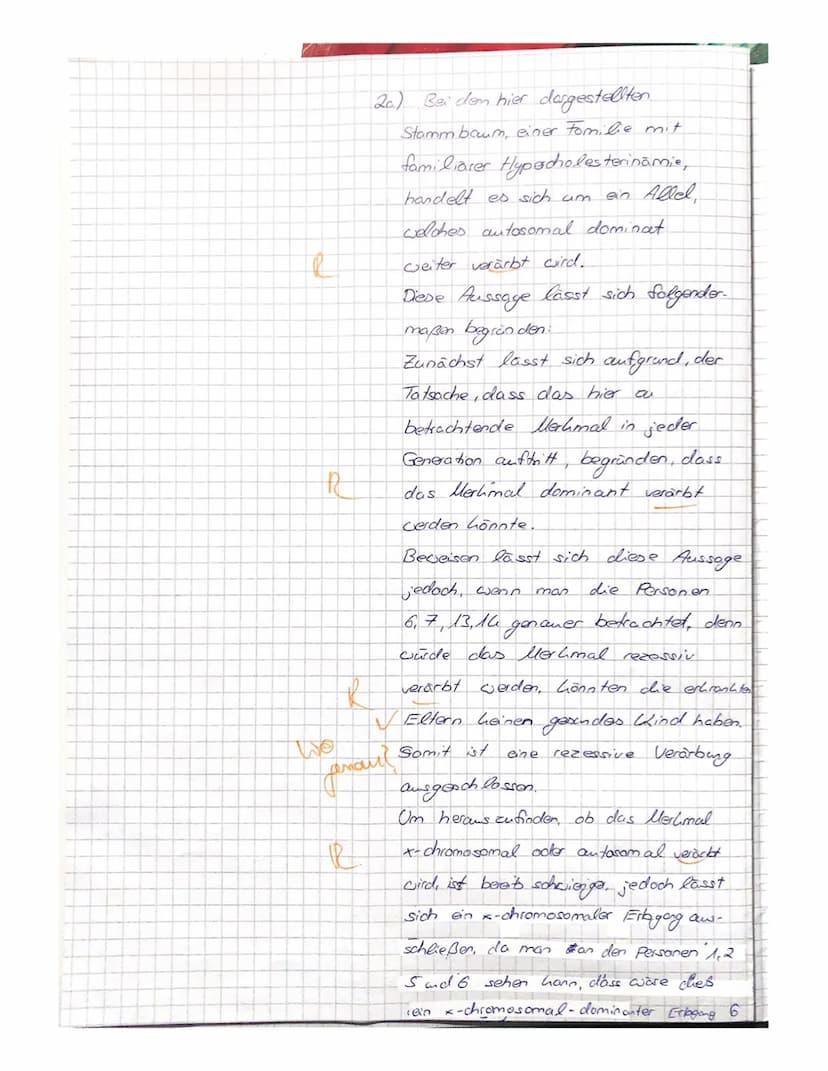 2a) Bei dem hier dargestellten
Stammbaum, einer Familie mit
familiärer Hypercholesterinämie,
handelt es sich um ein Allel,
welches autosomal dominat
R weiter verärbt wird.
Diese Aussage lässt sich folgender-
maßen begründen:
Zunächst lässt sich aufgrund, der
Tatsache, dass das hier zu
betrachtende Merkmal in jeder
Generation auftritt, begründen, dass
R das Merkmal dominant verärbt
werden könnte.
Beweisen lässt sich diese Aussage
jedoch, wenn man die Personen
6, 7, 13, 14 genauer betrachtet, denn
würde das Merkmal rezessiv
R verärbt werden, könnten die erkrankten
✓ Eltern keinen gesundes Kind haben.
Wo genau? Somit ist eine rezessive Verärbung
ausgeschlossen.
Um herauszufinden, ob das Merkmal
R x-chromosomal oder autosomal verärbt
wird, ist jedoch lässt
sich ein x-chromosomaler Erbgang aus-
schließen, da man an den Personen 1, 2
5 und 6 sehen kann, dass wäre dies
ein x-chromosomal-dominanter Erbgang 6